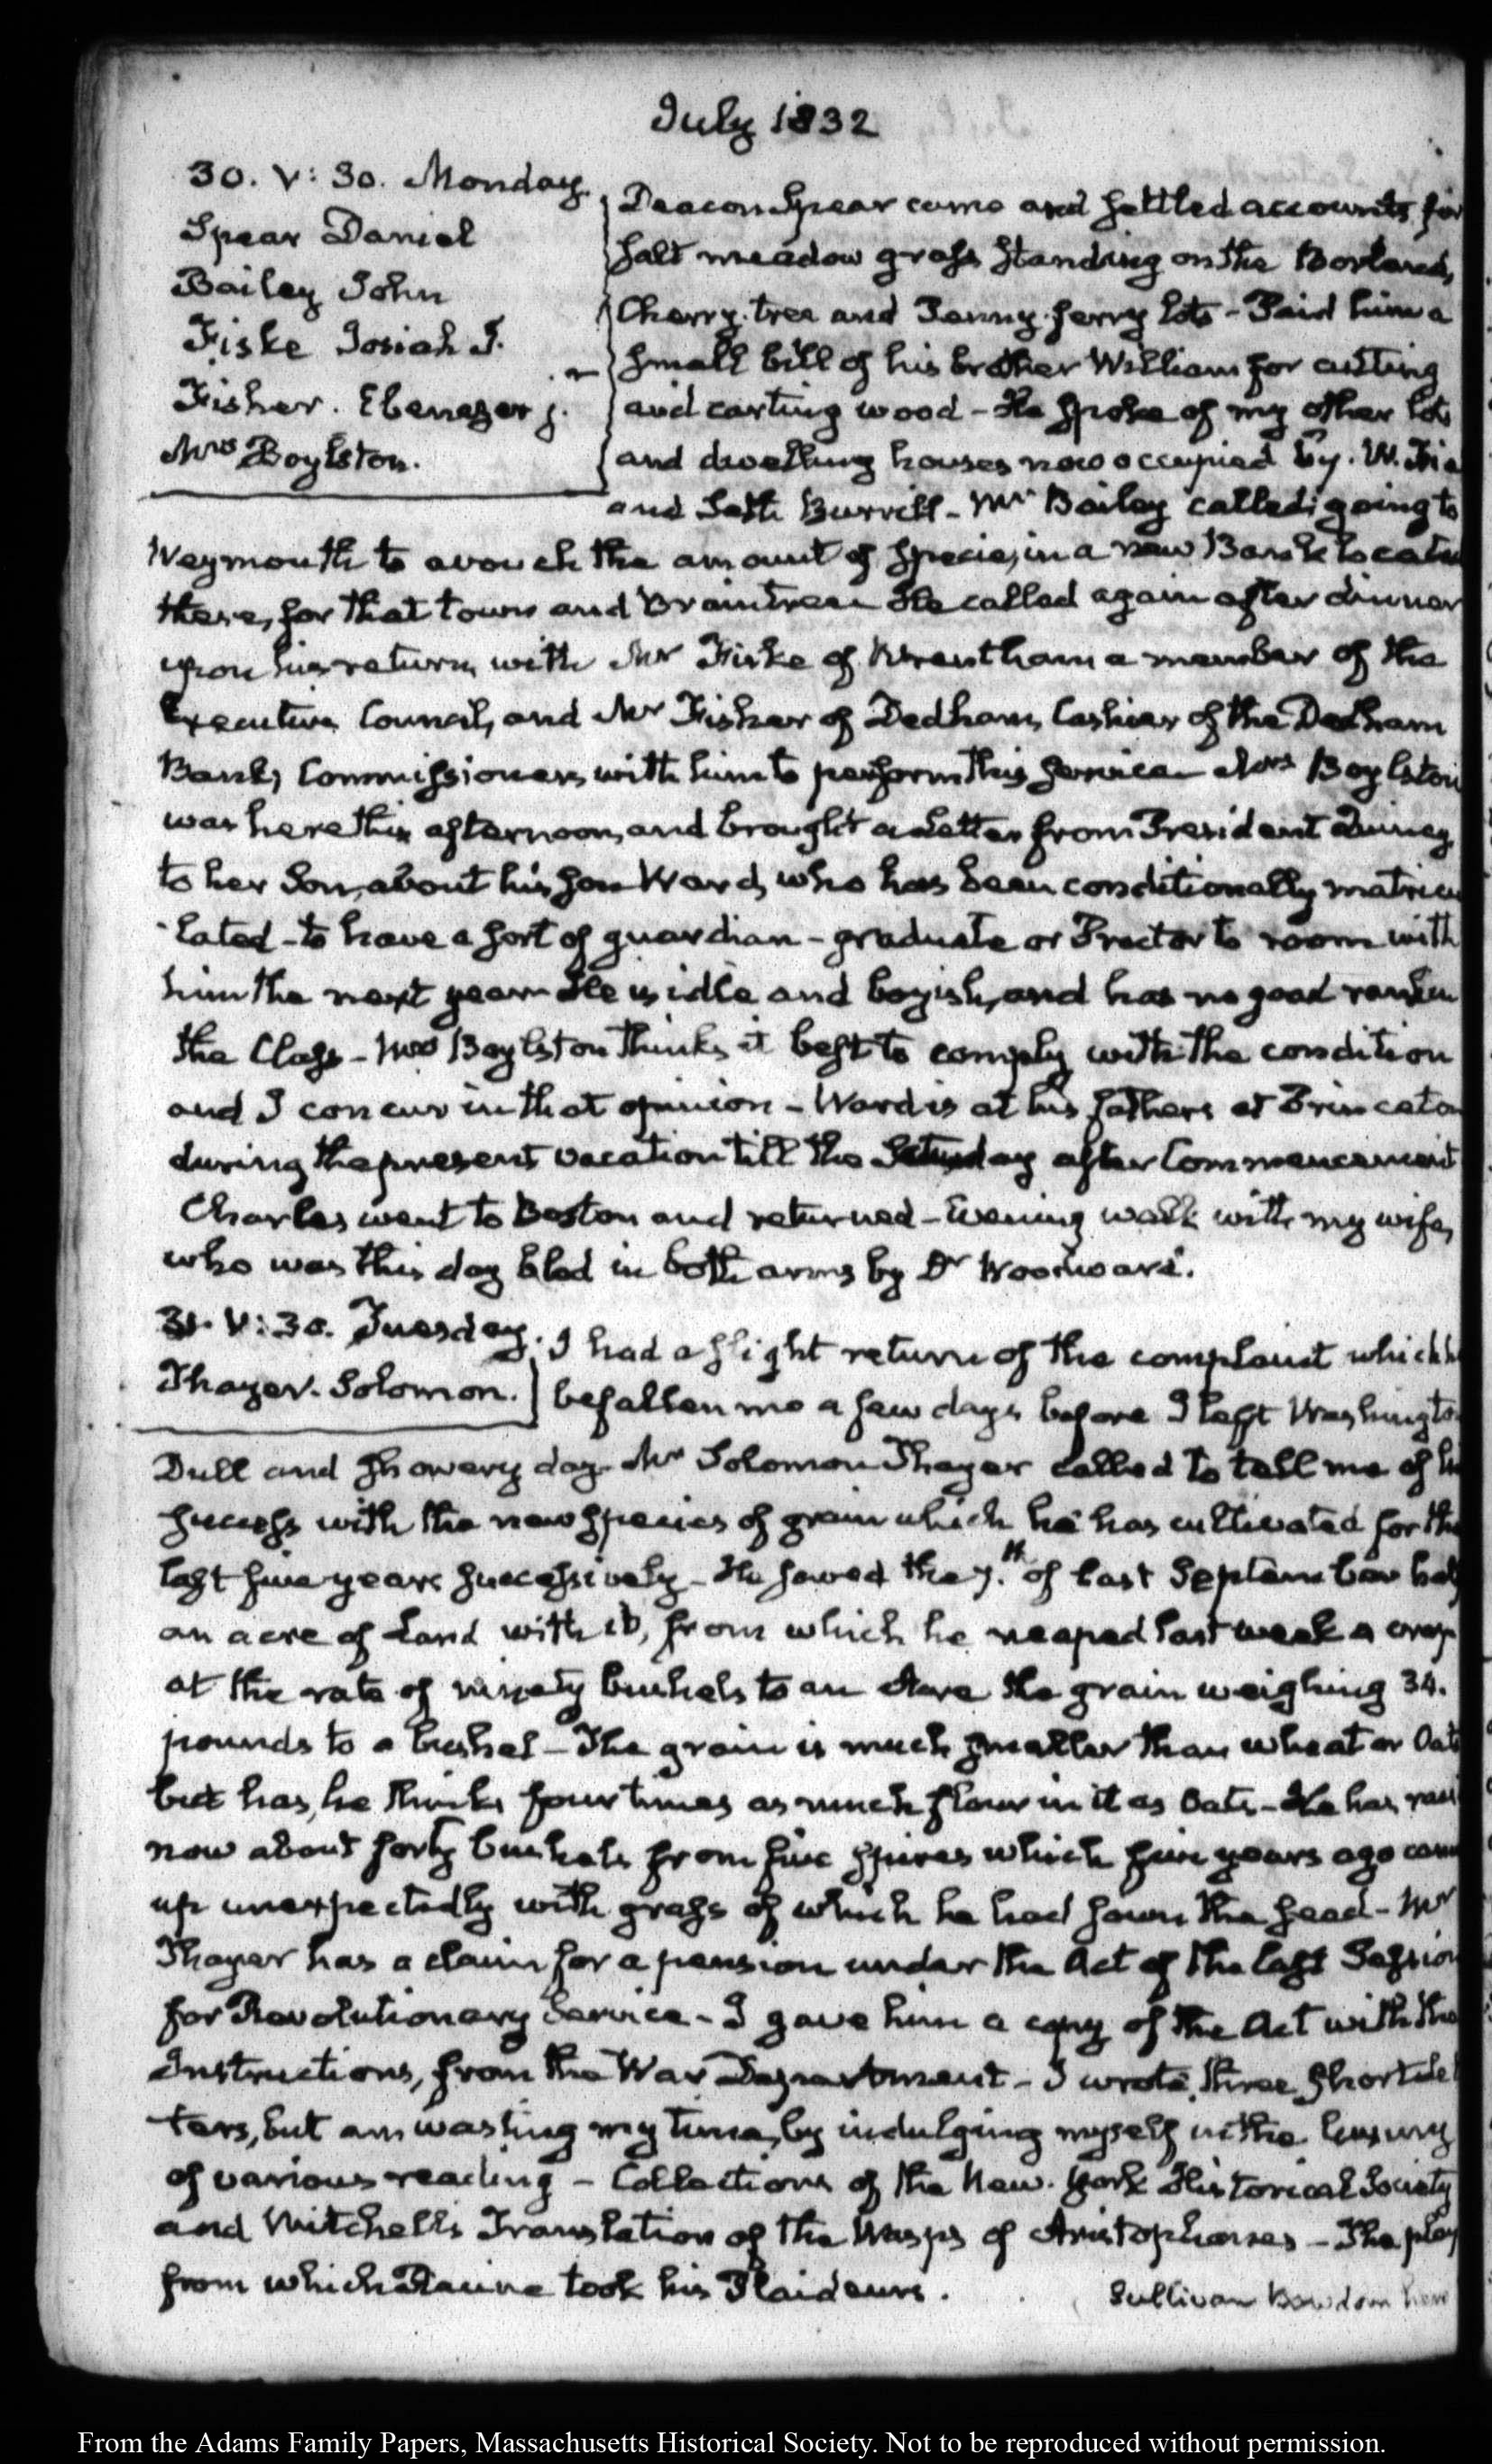 July 1832
30. V: 30. Monday.
Spear Daniel
Bailey John
Fiske Josiah J.
Fisher. Ebenezer j.
Mrs Boylston.
Deacon Spear came and settled accounts for
salt meadow grass standing on the Borland,
Cherry-tree and Penny-ferry lots - Paid him a
small bill of his brother William for cutting
and carting wood - He spoke of my other lots
and dwelling houses now occupied by. W.
and Seth Burrill - Mr Bailey called; going to
Weymouth to avouch the amount of specie, in a new Bank located
there, for that town and Braintree He called again after dinner
upon his return, with Mr Fiske of Wrentham a member of the
Executive Council, and Mr Fisher of Dedham, Cashier of the Dedham
Bank, Commissioners, with him to perform this service - Mrs Boylston
was here this afternoon, and brought a Letter from President Quincy,
to her Son, about his son Ward, who has been conditionally matricu
-lated - to have a sort of guardian - graduate or Proctor to room with
him the next year He is idle and boyish, and has no good rank in
the Class - Mrs Boylston thinks it best to comply with the condition
and I concur in that opinion - Ward is at his fathers at Princeton
during the present vacation till the Saturday after Commencement
Charles went to Boston and returned - Evening walk with my wife,
who was this day bled in both arms by Dr Woodward.
31. V: 30. Tuesday.
Thayer. Solomon.
I had a slight return of the complaint which h
befallen me a few days before I left Washington
Dull and showery day. Mr Solomon Thayer called to tell me of hi
success with the new species of grain which he has cultivated for the
last five years successively - He sowed the 7.th of last September half
an acre of Land with it, from which he reaped last week a crop
at the rate of ninety bushels to an Acre the grain weighing 34.
pounds to a bushel - The grain is much smaller than wheat or Oats
but has, he thinks four times as much flour in it as Oats - He has rais
now about forty bushels from five spires which five years ago came
up unexpectedly with grass of which he had sown the seed - Mr
Thayer has a claim for a pension under the Act of the last Session
for Revolutionary Service - I gave him a copy of the Act with the
Instructions, from the War Department - I wrote three short let
ters, but am wasting my time, by indulging myself in the luxury
of various reading - Collections of the New-York Historical Society
and Mitchell's Translation of the Wasps of Aristophanes - The play
from which Racine took his Plaideurs.
Sullivan Bowdoin here
From the Adams Family Papers, Massachusetts Historical Society. Not to be reproduced without permission.